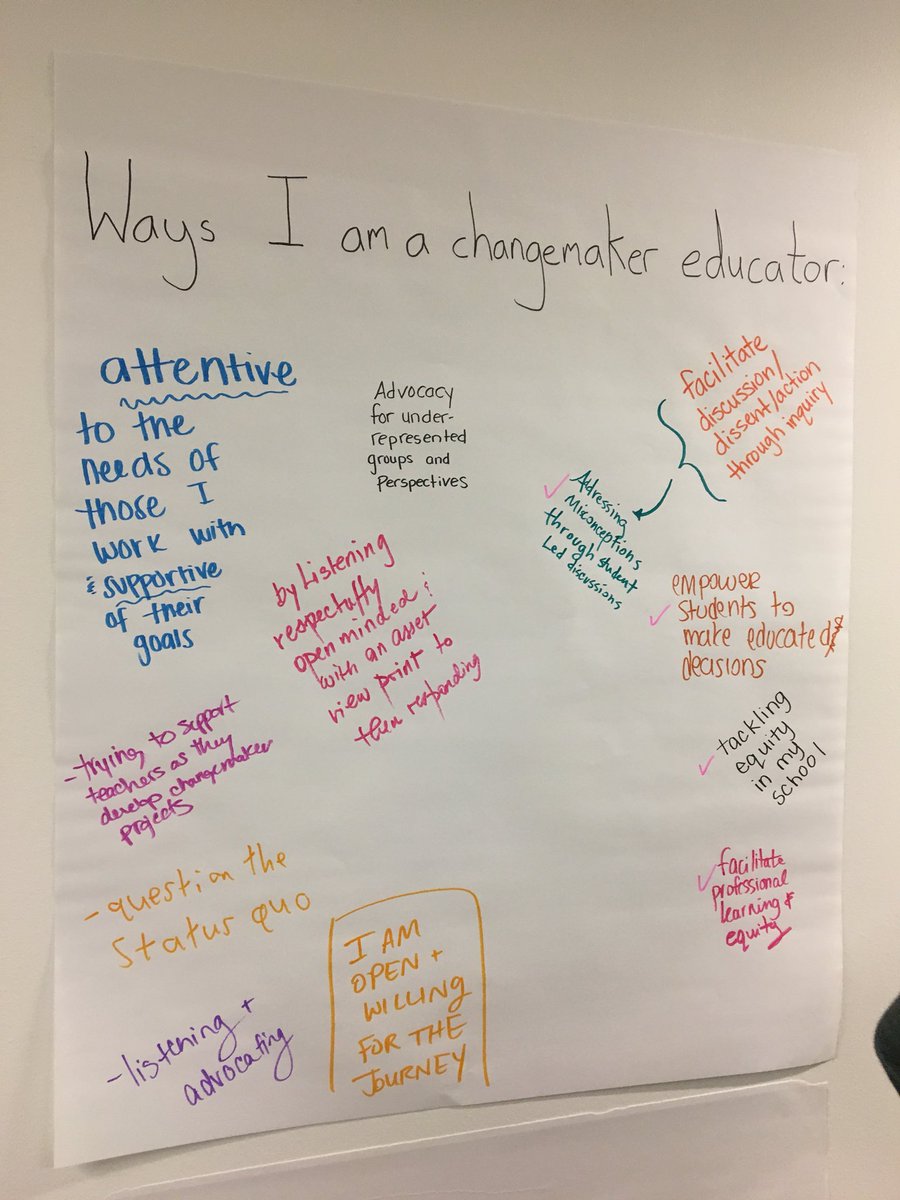 Ways I am a changemaker educator:
attentive
to the
needs of
those I
work with
& supportive
of their
goals
Advocacy
for under-
represented
groups and
Perspectives
facilitate
discussion/
dissent/action
through inquiry
Adressing
Misconceptions
through student
Led discussions
by Listening
respectfully
open minded &
with an asset
view print to
then responding
empower
students to
make educated
decisions
- trying to support
teachers as they
develop changemaker
projects
tackling
equity
in my
school
- question the
Status quo
facilitate
profssional
learning &
equity
I AM
OPEN +
WILLING
FOR THE
JOURNEY
- listening +
advocating